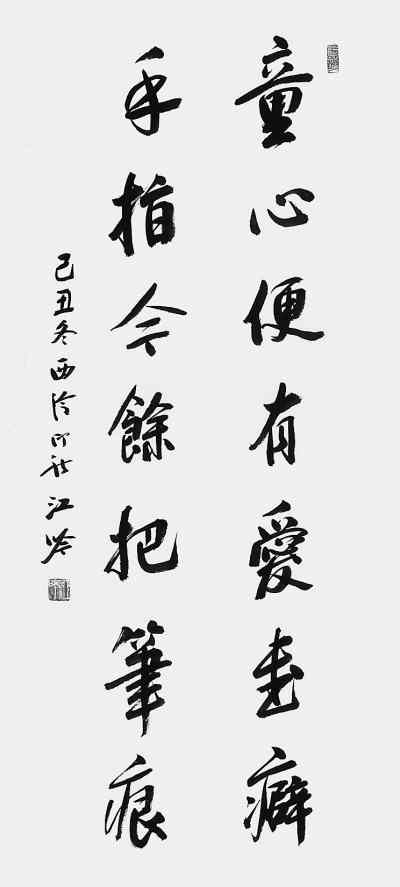 童心便有愛書癖
手指今餘把筆痕
己丑冬西泠印社江吟